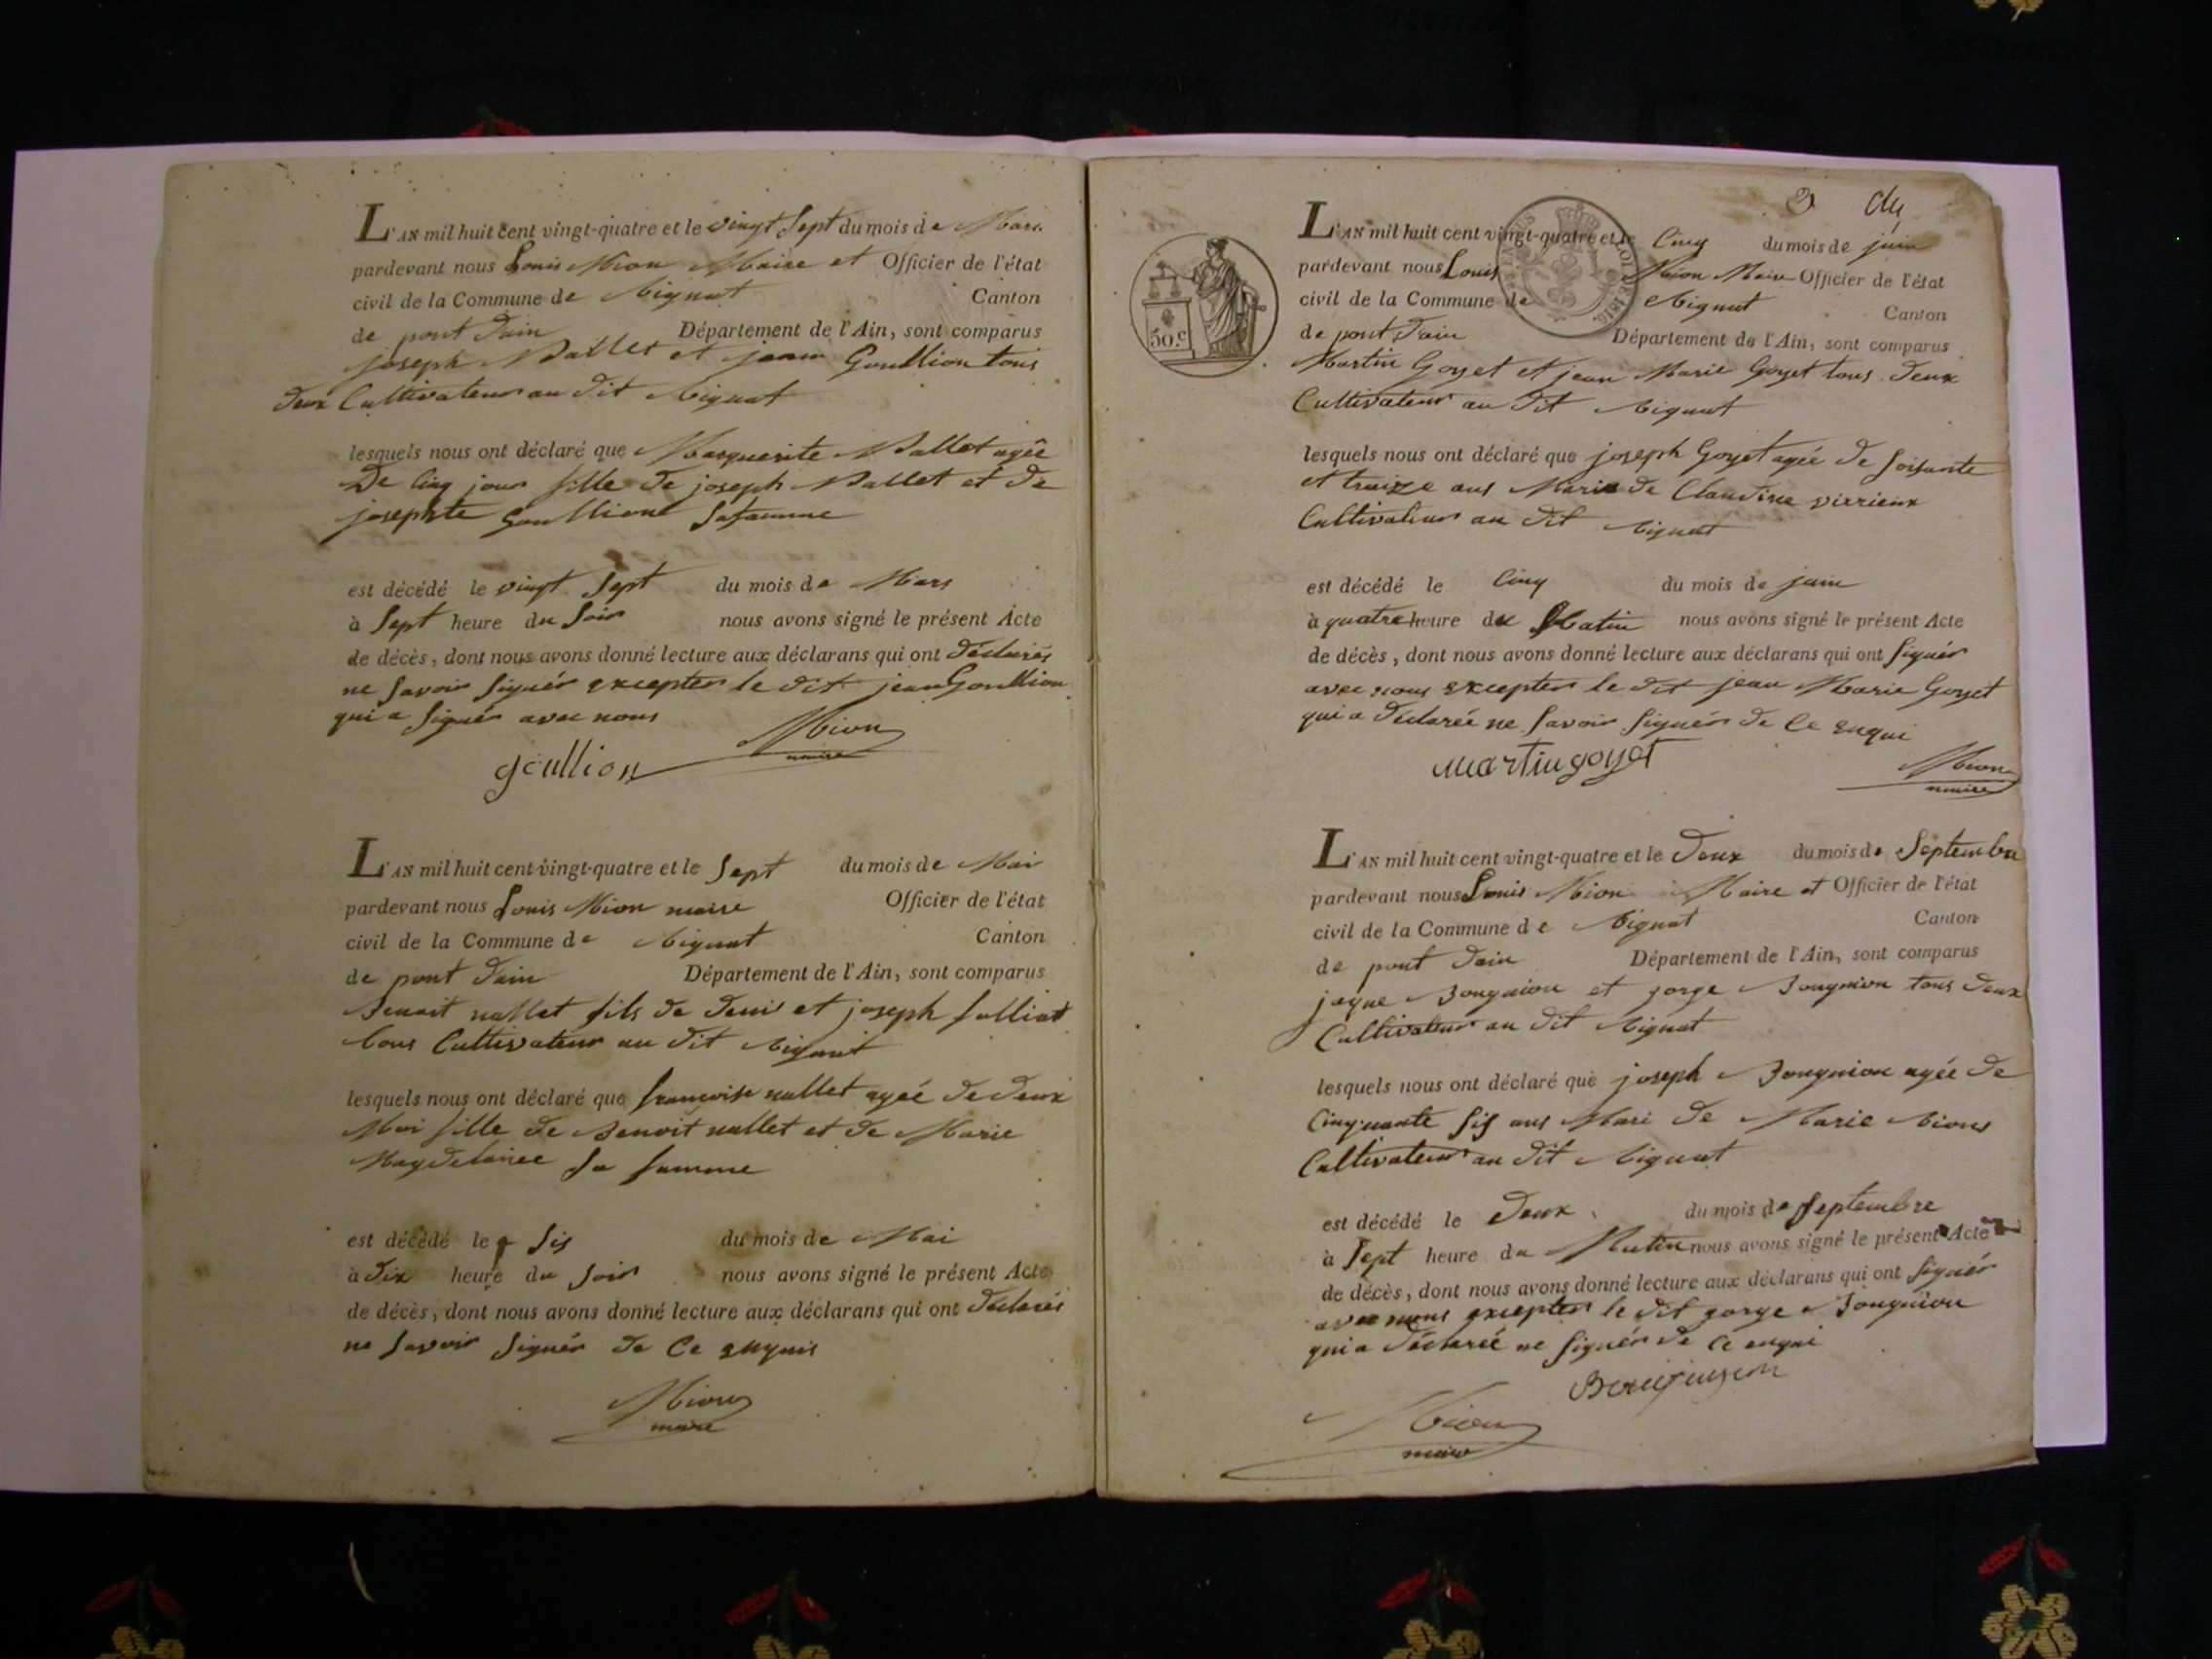 L'AN mil huit cent vingt-quatre et le vingt Sept du mois de Mars
pardevant nous Louis Mion Maire et Officier de l'état
civil de la Commune de Canton
de pont Dain Département de l'Ain, sont comparus
joseph et jean Goullion tous
deux Cultivateur au dit
lesquels nous ont déclaré que Marguerite agée
De Cinq jour fille de joseph et de
josephte Goullion Safamme
est décédé le vingt Sept du mois de Mars
à Sept heure du Soir nous avons signé le présent Acte
de décès, dont nous avons donné lecture aux déclarans qui ont déclarés
ne Savoir Signér excepter le dit jean Goullion
qui a Signér avec nous
Mion
maire
goullion
L'AN mil huit cent vingt-quatre et le Sept du mois de Mai
pardevant nous Louis Mion maire Officier de l'état
civil de la Commune de Canton
de pont Dain Département de l'Ain, sont comparus
Benoit nallet fils de denis et joseph
tous Cultivateur au dit
lesquels nous ont déclaré que francoise nallet agée de deux
Moi fille de Benoit nallet et de Marie
Sa famme
est décédé le Sis du mois de Mai
à Dix heure du Soir nous avons signé le présent Acte
de décès, dont nous avons donné lecture aux déclarans qui ont déclarés
ne Savoir Signér de Ce
Mion
maire
3
L'AN mil huit cent vingt-quatre et le Cinq du mois de juin
pardevant nous Louis Mion Maire Officier de l'état
civil de la Commune de Canton
de pont Dain Département de l'Ain, sont comparus
50.c
LOI DE 1816.
Martin Goyet et jean Marie Goyet tous deux
Cultivateur au dit
lesquels nous ont déclaré que joseph Goyet agée de Soisante
et traize ans Marie de Claudine
Cultivateur au dit
est décédé le Cinq du mois de juin
à quatre heure du Matin nous avons signé le présent Acte
de décès, dont nous avons donné lecture aux déclarans qui ont Signér
avec nous excepter le dit jean Marie Goyet
qui a déclarée ne Savoir Signér de Ce enqui
martin goyet
Mion
maire
L'AN mil huit cent vingt-quatre et le Deux du mois de Septembre
pardevant nous Louis Mion Maire et Officier de l'état
civil de la Commune de Canton
de pont Dain Département de l'Ain, sont comparus
jaque et gorge tous deux
Cultivateur au dit
lesquels nous ont déclaré que joseph agée de
Cinquante Sis ans Mari de Marie
Cultivateur au dit
est décédé le Deux du mois de Septembre
à Sept heure du Matin nous avons signé le présent Acte
de décès, dont nous avons donné lecture aux déclarans qui ont Signér
avec nous excepter le dit gorge
qui a déclarée ne Signér de Ce enqui
Mion
maire